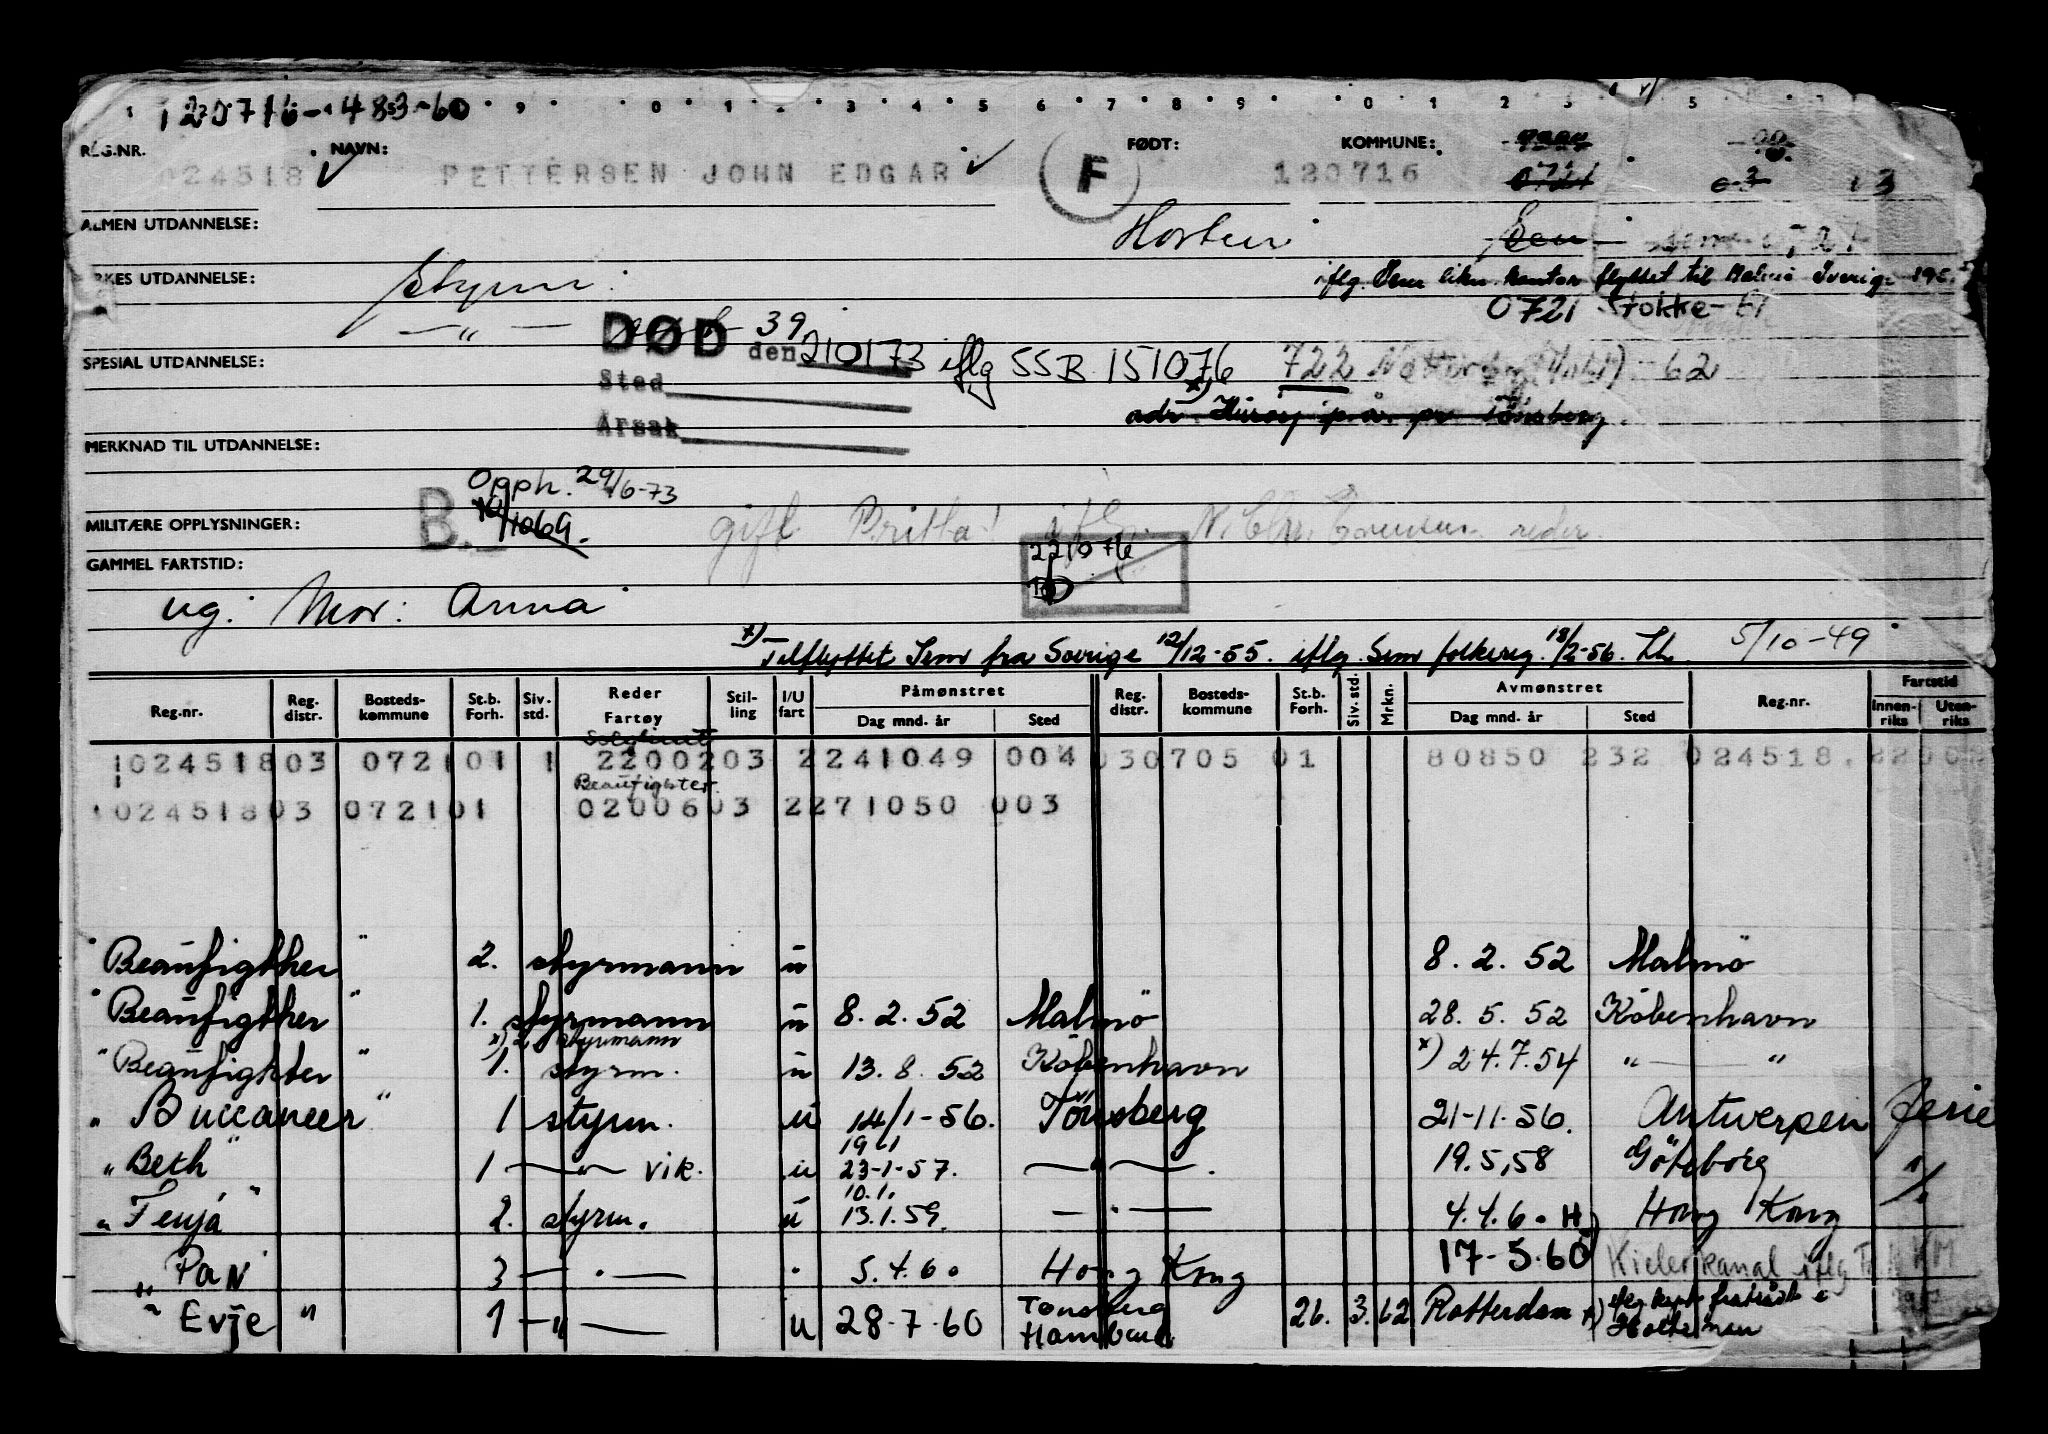 120716-48360
REG.NR. NAVN: FØDT: KOMMUNE:
024518 PETTERSEN JOHN EDGAR F 120716 0721
ALMEN UTDANNELSE: Horten
YRKES UTDANNELSE: Styrm. iflg. Sem likn. kontor flyttet til Malmö Sverige
— " — 39 0721 Stokke - 61
SPESIAL UTDANNELSE: DØD den 210173 iflg SSB 151076 722 Nøtterøy - 62
Sted
Årsak adr. Husøy p.å. pr Tönsberg.
MERKNAD TIL UTDANNELSE:
Opph. 29/6-73
MILITÆRE OPPLYSNINGER: B. 10/1069. gift Britta iflg. N. Chr. reder.
GAMMEL FARTSTID: 221076
ug. Mor: Anna
x) Tilflyttet Sem fra Sverige 12/12-55. iflg. Sem folkereg. 18/2-56. 5/10-49
Reg.nr. Reg. distr. Bosteds-kommune St.b. Forh. Siv. std. Reder Fartøy Stil-ling I/U fart Påmønstret Dag mnd. år Sted Reg. distr. Bosteds-kommune St.b. Forh. Siv. std. Mrkn. Avmønstret Dag mnd. år Sted Reg.nr. Fartstid Innen-riks Uten-riks
Solglimt
102451803 072101 1 2200203 2241049 004 030705 01 80850 232 024518
Beaufighter.
102451803 072101 0200603 2271050 003
"Beaufigther" 2. styrmann u 8. 2. 52 Malmö
"Beaufigther" 1. styrmann u 8. 2. 52 Malmö 28. 5. 52 København
x) 2. styrmann
"Beaufighter" 1. styrm. u 13. 8. 52 København x) 24.7.54 " — "
"Buccaneer" 1 styrm. u 14/1-56. Tönsberg 21-11-56. Antwerpen ferie
19/1
"Beth" 1 — " — vik. u 23-1-57. — " — . 19.5.58 Göteborg
10.1.
"Fenja" 2. styrm. u 13.1.59. — " — 4.4.60 Hong Kong
"Pan" 3 — " — 5.4.60 Hong Kong 17-5.60 Kielerkanal iflg
"Evje" 1 — " — u 28-7-60 Tønsberg Hamburg 26. 3. 62 Rotterdam x)